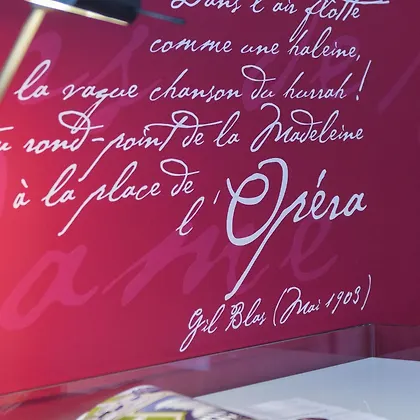 Dans l'air flotte
comme une haleine,
la vague chanson du hurrah !
rond-point de la Madeleine
à la place de
l'Opéra
Gil Blas (Mai 1903)